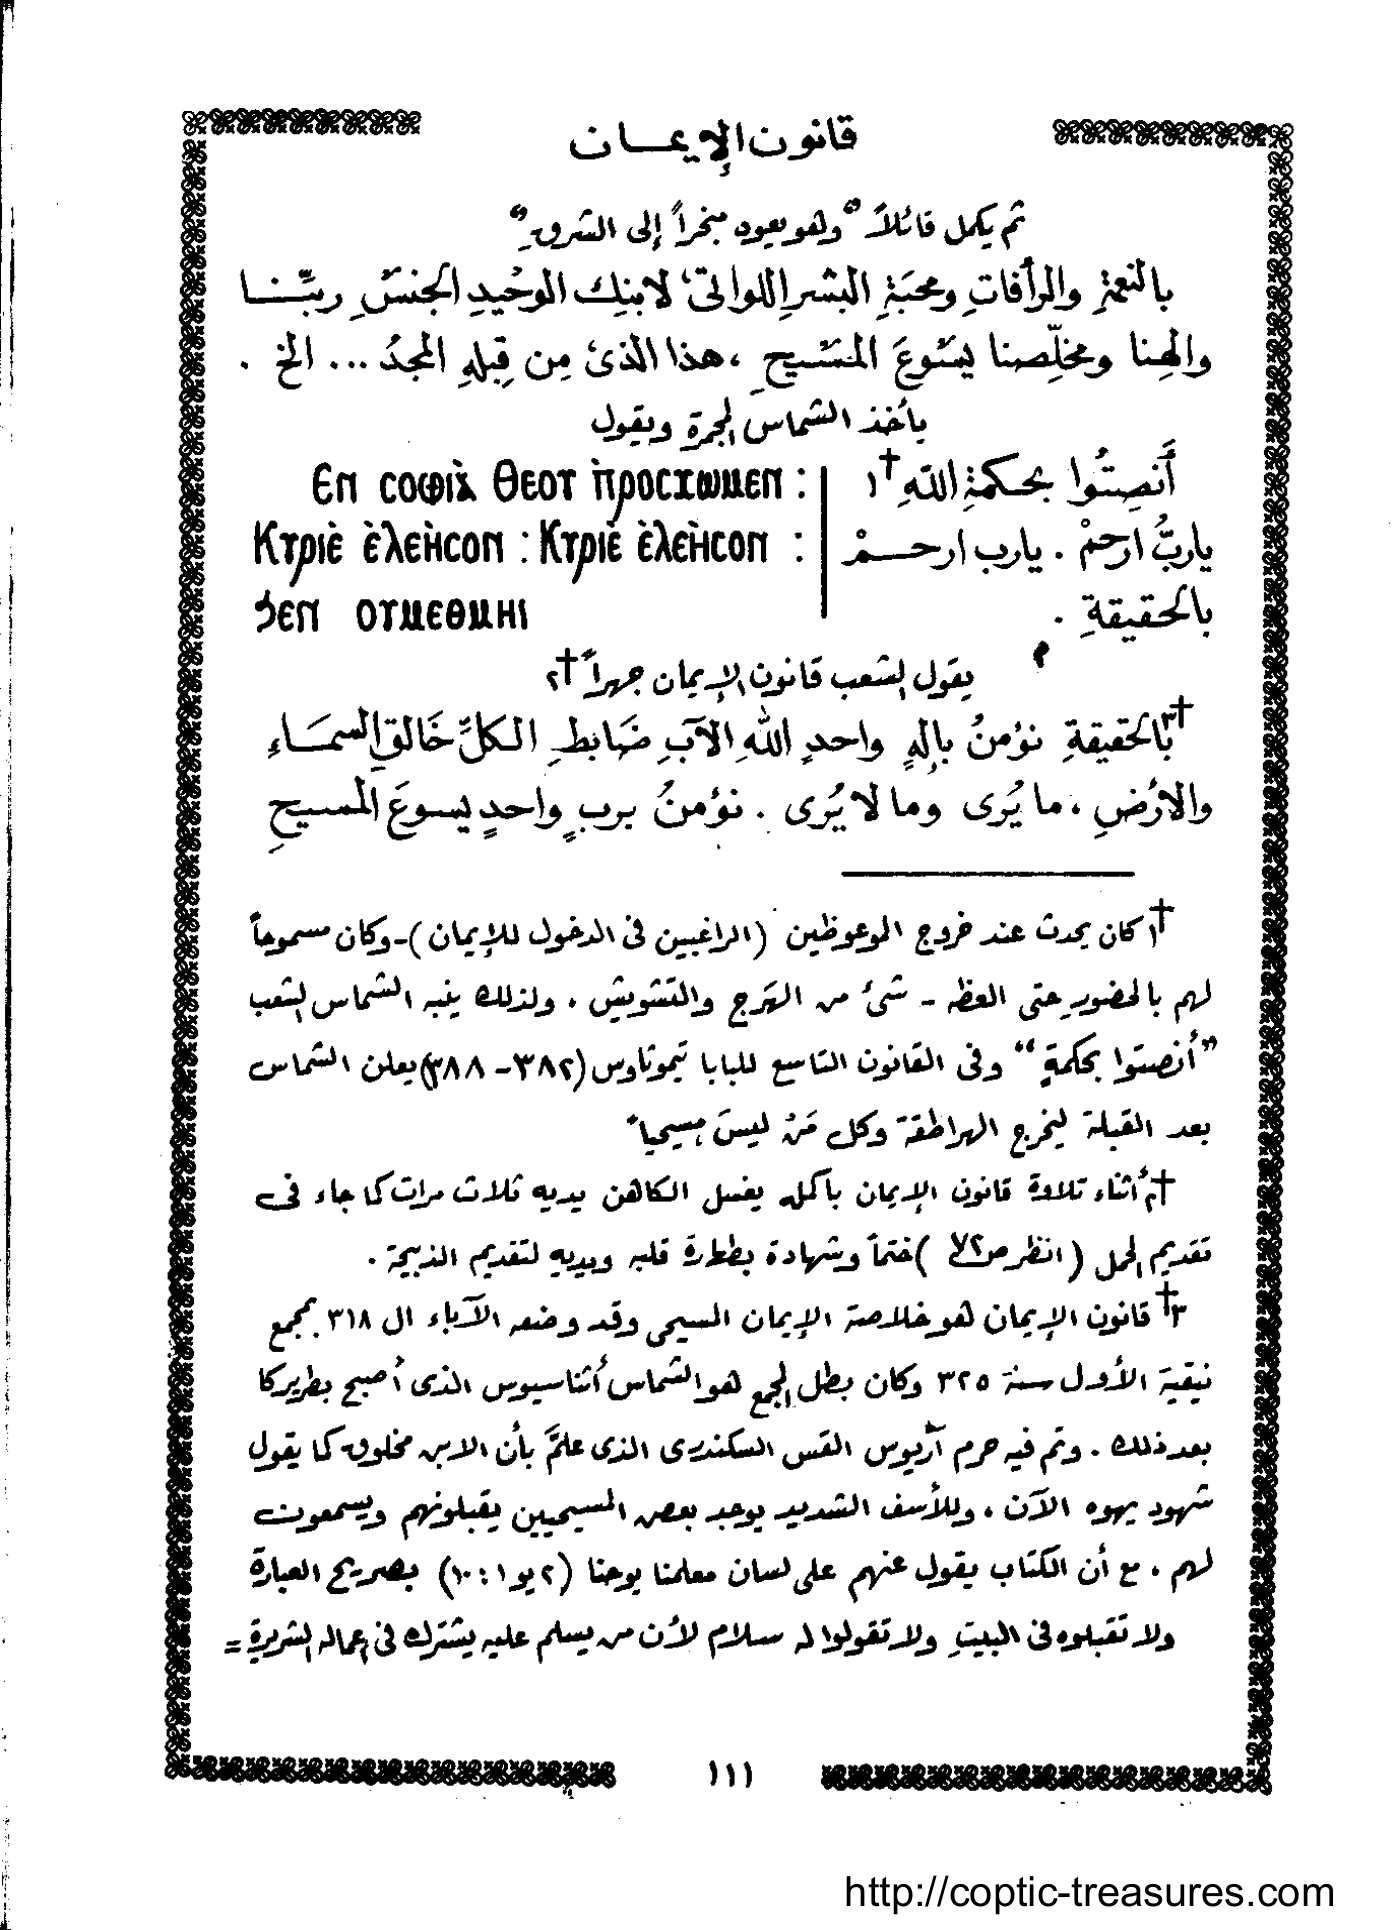 قانون الإيمــان
ثم يكمل قائلاً "وهو يعود مبخراً إلى الشرق"
بالنعمةِ والرأفاتِ ومحبَةِ البشرِ اللواتى لابنِك الوحُيدِ الجنسِ ربّنــا
والهِنا ومخلِّصنا يسُوعَ المسيحِ ، هذا الذى مِن قِبلهِ المجدُ ... الخ .
يأخذ الشماس المجمرة ويقول
أَنصِتُوا بحكمةِ اللهِ †١
Ⲉⲛ ⲥⲟⲫⲓ̀ⲁ Ⲑⲉⲟⲩ ⲡ̀ⲣⲟⲥⲭⲱⲙⲉⲛ :
ياربُّ ارحمْ . يارب ارحــمْ
Ⲕⲩⲣⲓⲉ̀ ⲉ̀ⲗⲉⲏ̀ⲥⲟⲛ : Ⲕⲩⲣⲓⲉ̀ ⲉ̀ⲗⲉⲏ̀ⲥⲟⲛ :
بالحقيقةِ .
ϧⲉⲛ ⲟⲩⲙⲉⲑⲙⲏⲓ
يقول الشعب قانون الإيمان جهراً †٢
†٣ بالحقيقةِ نؤمنُ بإلهٍ واحدٍ اللهِ الآبِ ضَابطِ الكلِّ خَالقِ السمَـاءِ
والارْضِ ، ما يُرى وما لا يُرى . نؤمنُ بربٍ واحدٍ يسوعَ المسيحِ
†١ كان يحدث عند خروج الموعوظين (الراغبين فى الدخول للإيمان)-وكان مسموحاً
لهم بالحضور حتى العظه - شئ من الهَرج والتشويش ، ولذلك ينبه الشماس الشعب
"أنصتوا بحكمةٍ" وفى القانون التاسع للبابا تيموثاوس (٣٨٢-٣٨٨) يعلن الشماس
بعد القبلة ليخرج الهراطقة وكل مَنْ ليسَ مسيحياً
†٢ أثناء تلاوة قانون الإيمان بأكمله يغسل الكاهن يديه ثلاث مرات كما جاء فى
تقديم الحمل (انظر ص ٧٢) ختماً وشهادة بطهارة قلبه ويديه لتقديم الذبيحة .
†٣ قانون الإيمان هو خلاصة الإيمان المسيحى وقد وضعه الآباء ال ٣١٨ بمجمع
نيقية الأول سنة ٣٢٥ وكان بطل المجمع هو الشماس أثناسيوس الذى أصبح بطريركا
بعد ذلك . وتم فيه حرم آريوس القس السكندرى الذى علَّم بأن الابن مخلوق كما يقول
شهود يهوه الآن ، وللأسف الشديد يوجد بعض المسيحيين يقبلونهم ويسمعون
لهم ، مع أن الكتاب يقول عنهم على لسان معلمنا يوحنا (٢يو١ : ١٠) بصريح العبارة
ولا تقبلوه فى البيتِ ولا تقولوا له سلام لأن من يسلم عليه يشترك فى أعماله الشريرة =
١١١
http://coptic-treasures.com